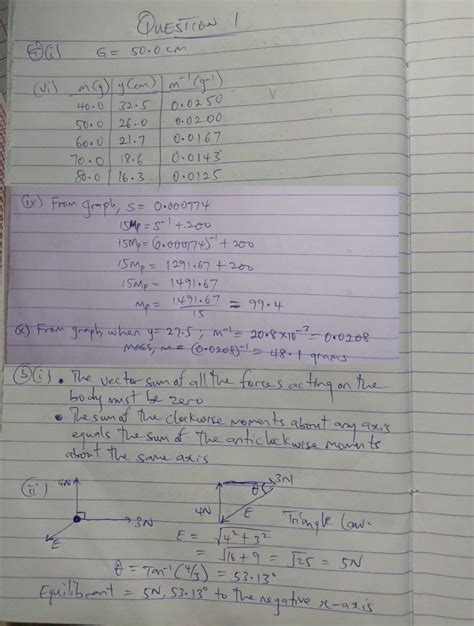 QUESTION 1
(i) G = 50.0cm
(vi) m(g) y(cm) m⁻¹(g⁻¹)
40.0 32.5 0.0250
50.0 26.0 0.0200
60.0 21.7 0.0167
70.0 18.6 0.0143
80.0 16.3 0.0125
(ix) From graph, s = 0.000774
15Mp = s⁻¹ + 200
15Mp = (0.000774)⁻¹ + 200
15Mp = 1291.67 + 200
15Mp = 1491.67
Mp = 1491.67/15 = 99.4
(x) From graph when y = 27.5 ; m⁻¹ = 20.8 x 10⁻³ = 0.0208
mass, m = (0.0208)⁻¹ = 48.1 grams
(b)(i) • The vector sum of all the forces acting on the
body must be zero
• The sum of the clockwise moments about any axis
equals the sum of the anticlockwise moments
about the same axis
(ii) 4N
3N
E
3N
θ
4N
E
Triangle Law.
E = √4² + 3²
= √16 + 9 = √25 = 5N
θ = Tan⁻¹(4/3) = 53.13°
Equilibrant = 5N, 53.13° to the negative x-axis